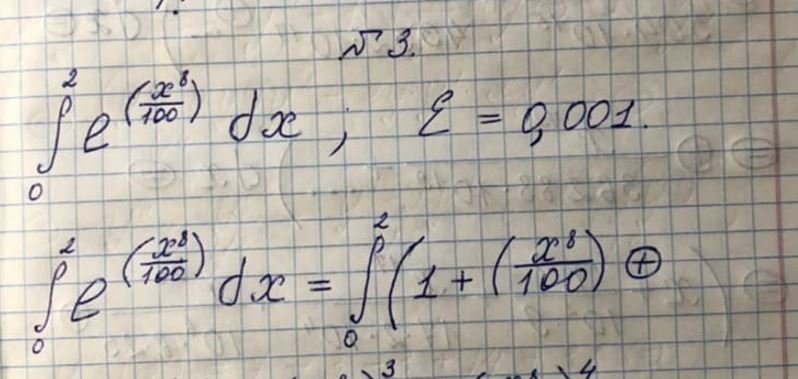 № 3.
∫₀² e^(x⁸/100) dx ; Ɛ = 0,001.
∫₀² e^(x⁸/100) dx = ∫₀² (1 + (x⁸/100) ⊕